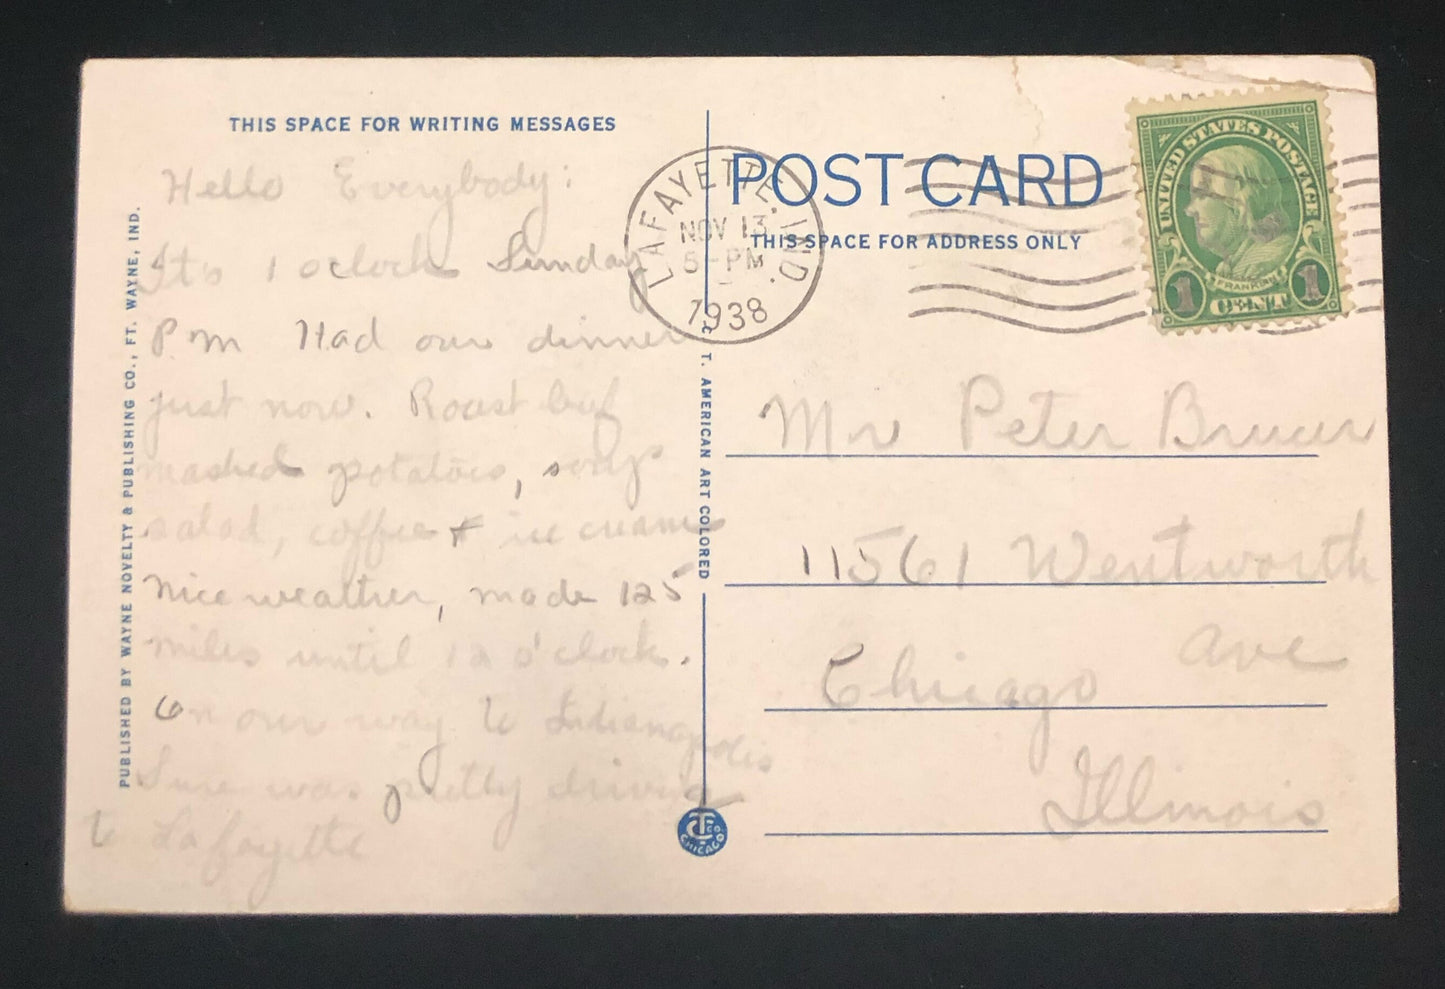 THIS SPACE FOR WRITING MESSAGES
Hello Everybody:
It's 1 oclock Sunday
P.M Had our dinner
just now. Roast beef
mashed potatoes, soup
salad, coffee + ice cream
Nice weather, made 125
miles until 12 o'clock.
On our way to Indianapolis
Sure was pretty driving
to Lafayette
PUBLISHED BY WAYNE NOVELTY & PUBLISHING CO., FT. WAYNE, IND.
C. T. AMERICAN ART COLORED
CT CO
CHICAGO
LAFAYETTE, IND.
NOV 13
5-PM
1938
POST CARD
THIS SPACE FOR ADDRESS ONLY
UNITED STATES POSTAGE
FRANKLIN
1 CENT 1
Mr Peter
11561 Wentworth
Ave
Chicago
Illinois